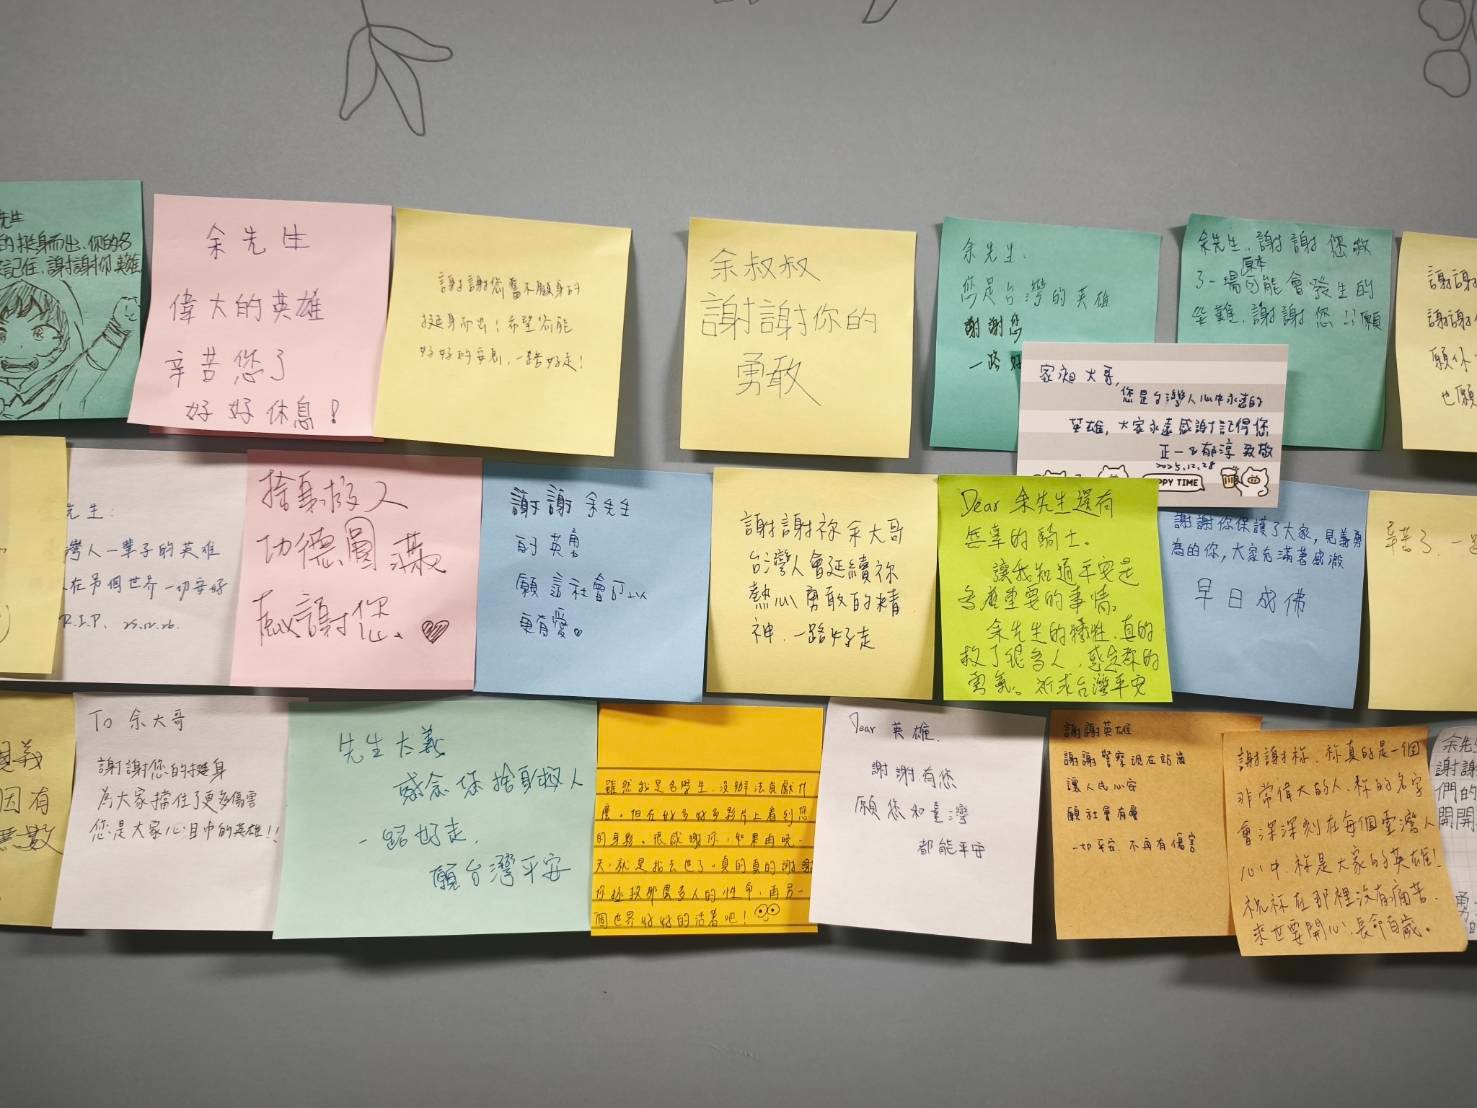 先生
的挺身而出、你的名
記住、謝謝你英雄
余先生
偉大的英雄
辛苦您了
好好休息！
謝謝您奮不顧身的
挺身而出！希望您能
好好的安息，一路好走！
余叔叔
謝謝你的
勇敢
余先生、
您是台灣的英雄
謝謝您
一路好
家昶 大哥，
您是台灣人心中永遠的
英雄，大家永遠感謝記得您
正一 郁淳 致敬
2025.12.28
PPY TIME
余先生，謝謝您救
了一場原本可能會發生的
災難，謝謝您！！願
謝謝
謝謝
願
也願
先生：
灣人一輩子的英雄
在另個世界一切安好
R.I.P. 25.12.26.
捨身救人
功德圓滿
感謝您、
謝謝 余先生
的英勇
願這社會可以
更有愛。
謝謝祢余大哥
台灣人會延續祢
熱心勇敢的精
神，一路好走
Dear 余先生還有
無辜的騎士。
讓我知道平安是
多麼重要的事情。
余先生的犧牲，真的
救了很多人，感定你的
勇氣。祈求台灣平安
謝謝你保護了大家，見義勇
為的你，大家充滿著感激
早日成佛
辛苦了，一
見義
因有
無數
To 余大哥
謝謝您的挺身
為大家擋住了更多傷害
您是大家心目中的英雄!!
先生大義
感念您捨身救人
一路好走，
願台灣平安
雖然我是名學生，沒辦法貢獻什
麼，但在好多好多影片上看到您
的身影，很感謝你，如果再晚一
天，就是我去也了，真的真的謝謝
你拯救那麼多人的性命，再另一
個世界好好的活著吧！
Dear 英雄，
謝謝有您
願您和臺灣
都能平安
謝謝英雄
謝謝警察現在站崗
讓人民心安
願社會有愛
一切平安，不再有傷害
謝謝祢，祢真的是一個
非常偉大的人，祢的名字
會深深刻在每個臺灣人
心中，祢是大家的英雄！
祝祢在那裡沒有痛苦，
來世要開心，長命百歲。
余先生
謝謝
們的
開開